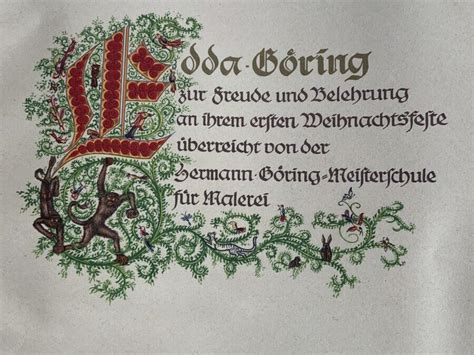 Edda · Göring
zur Freude und Belehrung
an ihrem ersten Weihnachtsfeste
überreicht von der
Hermann · Göring-Meisterschule
für Malerei